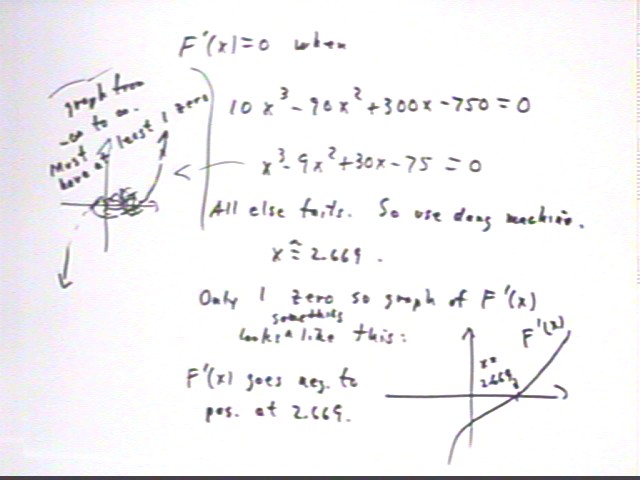 F'(x)=0 when
graph from
-∞ to ∞.
Must
have at least 1 zero
10x³ - 90x² + 300x - 750 = 0
x³ - 9x² + 30x - 75 = 0
All else fails. So use dang machine.
x ≈ 2.669.
Only 1 zero so graph of F'(x)
looks something like this:
F'(x) goes neg. to
pos. at 2.669.
F'(x)
x=
2.669